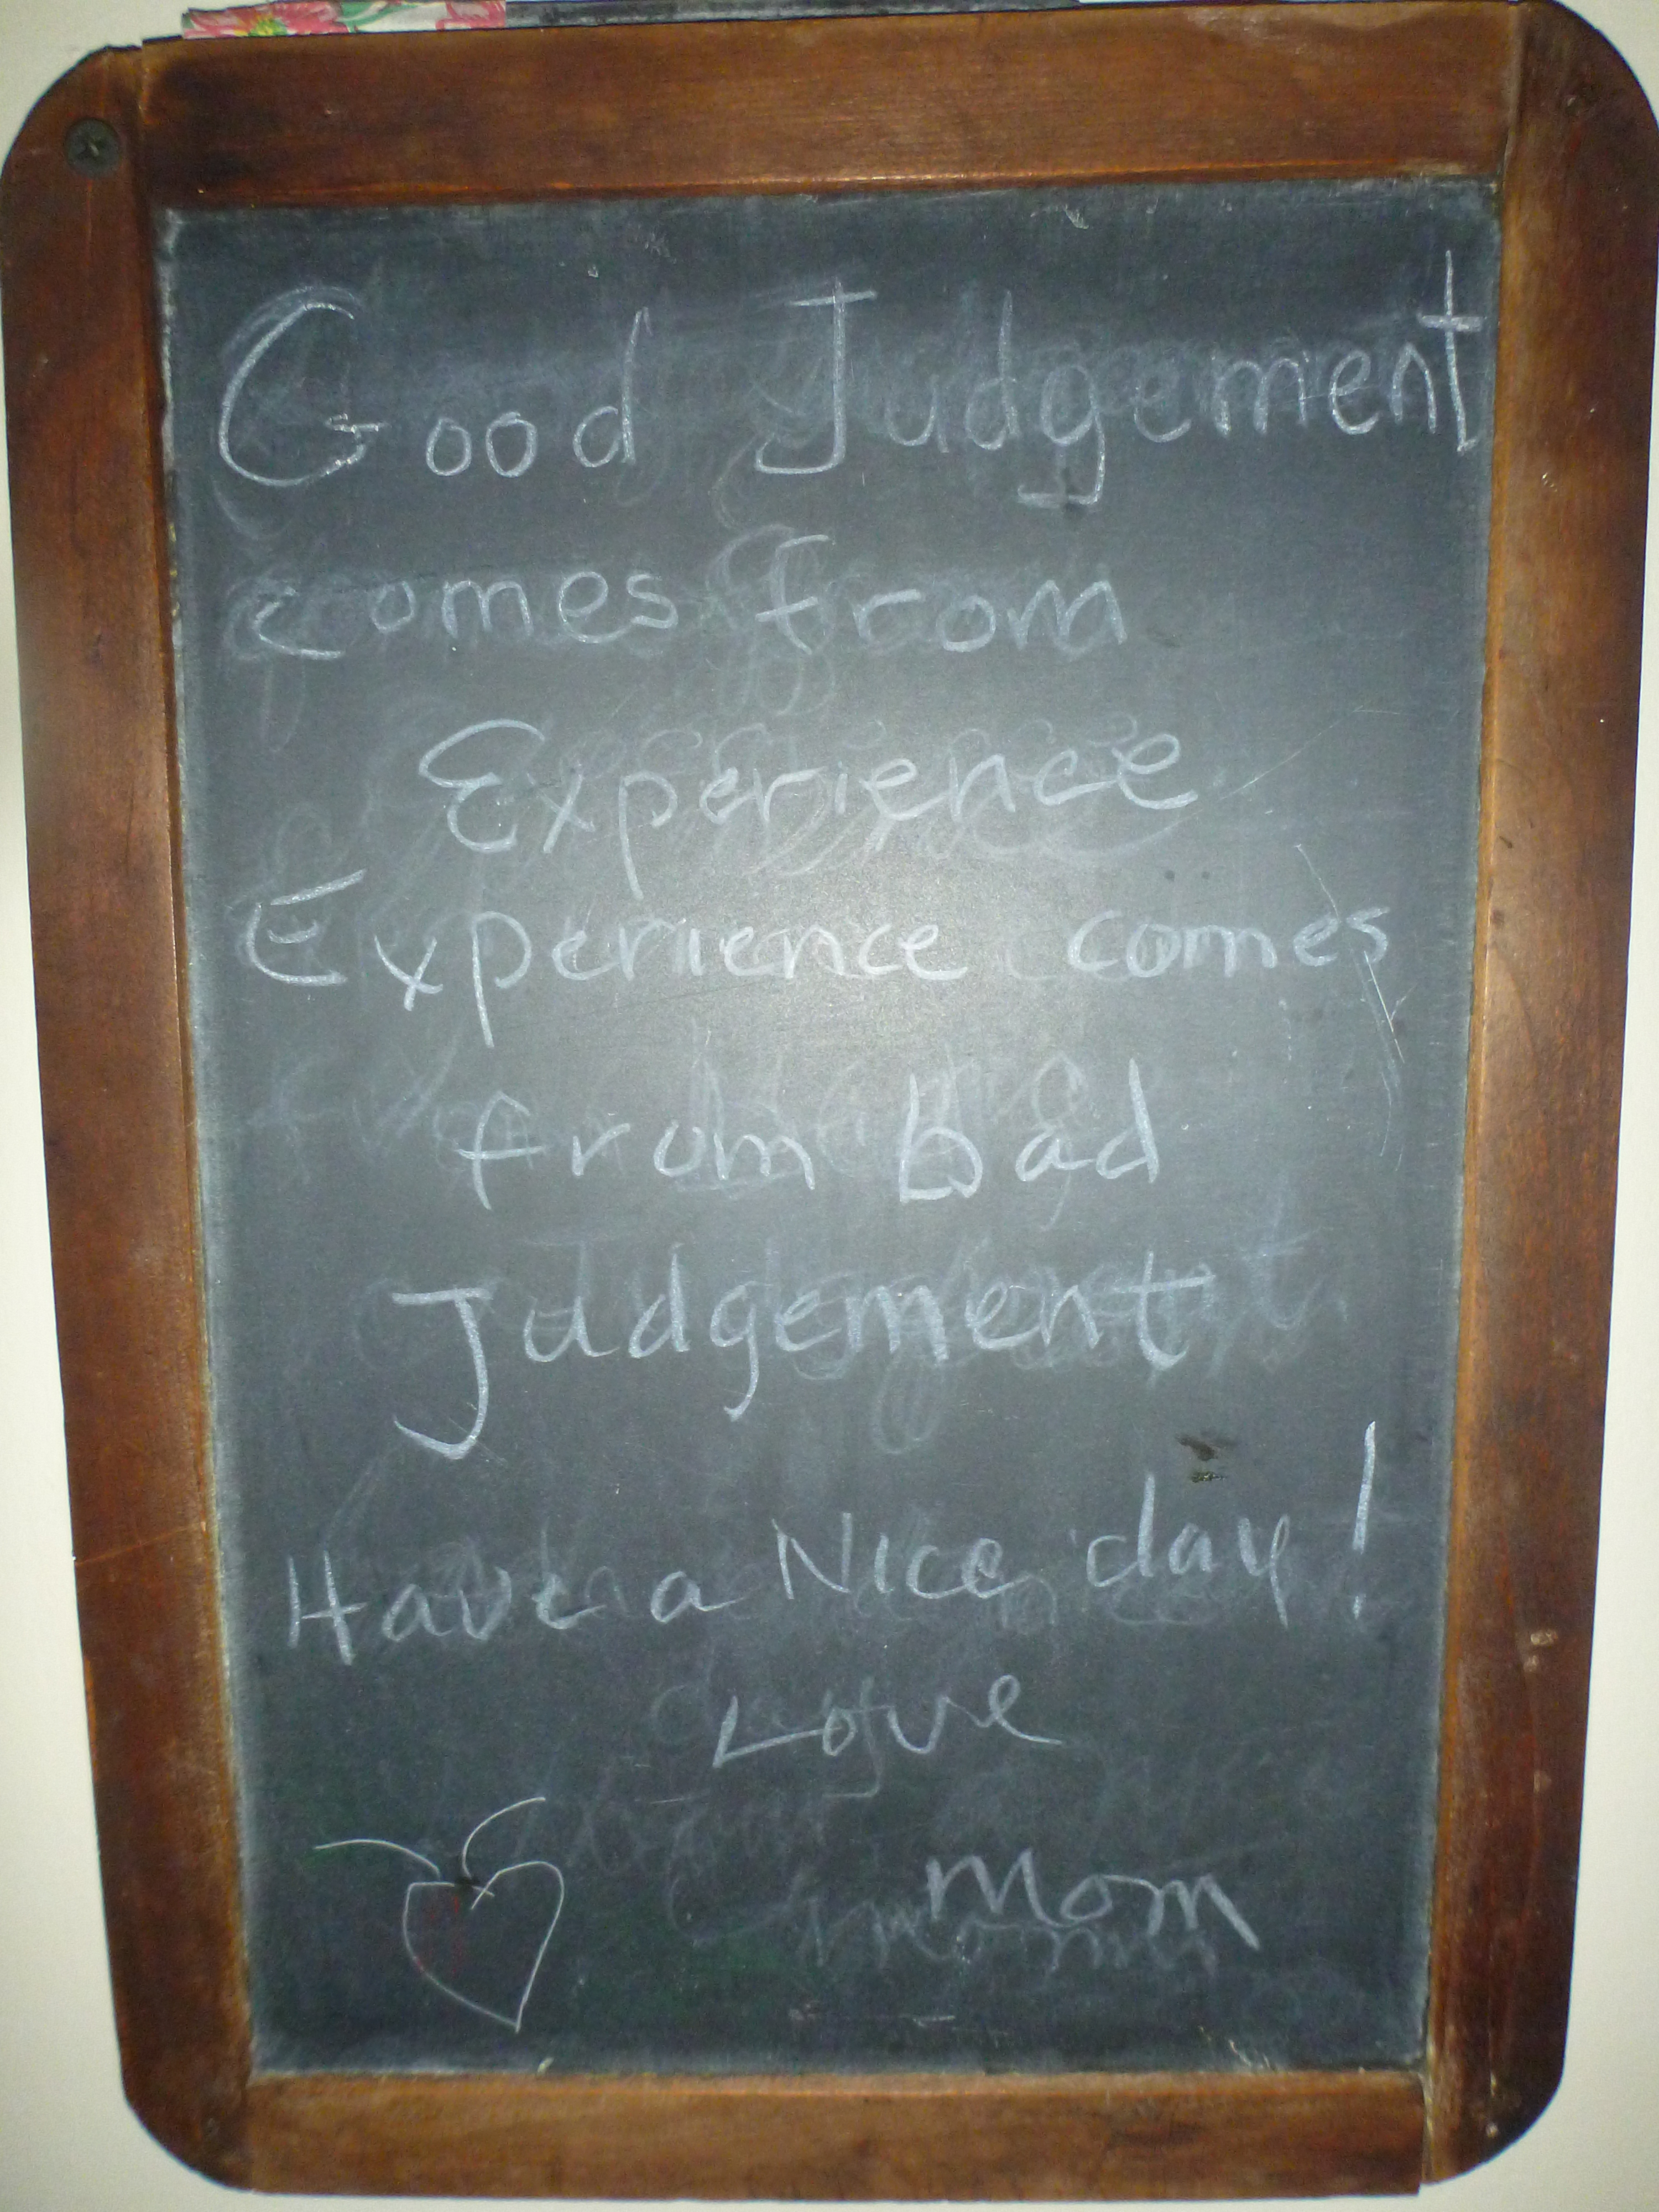 Good Judgement
comes from
Experience
Experience comes
from bad
Judgement
Have a Nice day!
Love
Mom